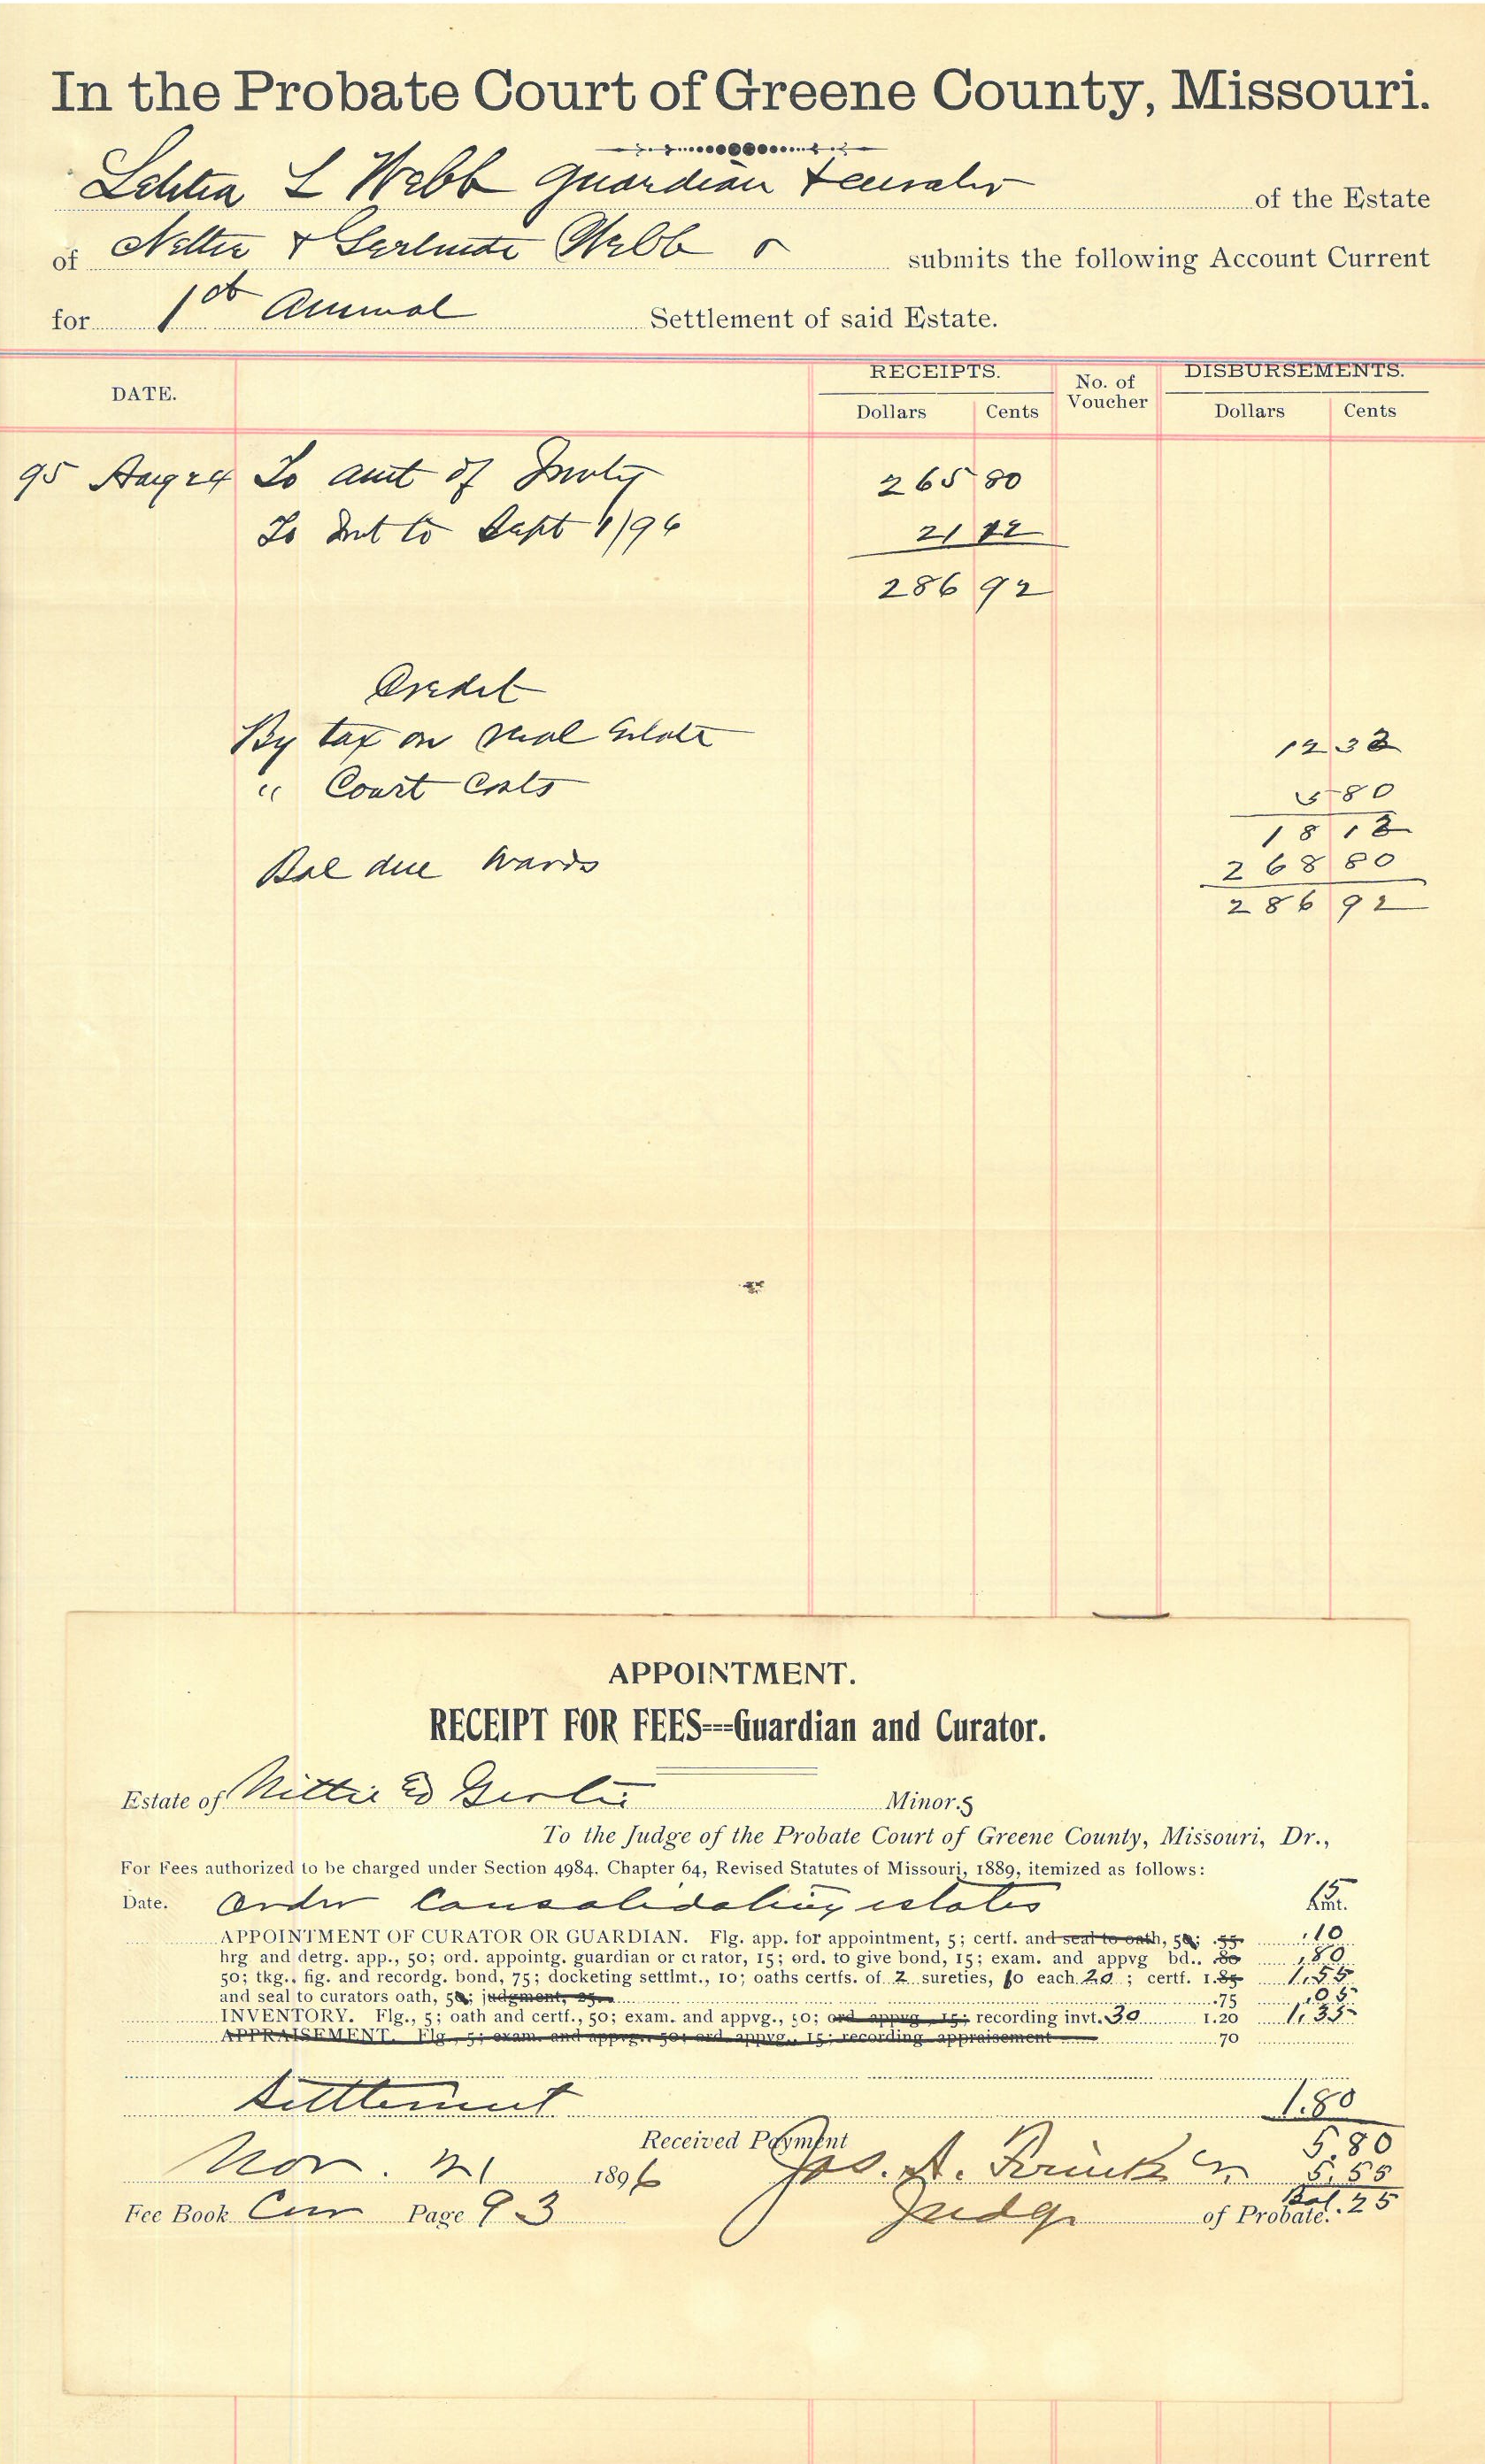 In the Probate Court of Greene County, Missouri.
L Webb Guardian & curator of the Estate
of Nettie & Gertrude Webb submits the following Account Current
for 1st Annual Settlement of said Estate.
DATE. RECEIPTS. No. of Voucher DISBURSEMENTS.
Dollars Cents Dollars Cents
95 Aug 24 To amt of Invty 265 80
To Int to Sept 1/96 21 12
286 92
Credit
By tax on real Estate 12 32
" Court Costs 5 80
18 12
Bal due wards 268 80
286 92
APPOINTMENT.
RECEIPT FOR FEES---Guardian and Curator.
Estate of Nittie Gertie Minor.s
To the Judge of the Probate Court of Greene County, Missouri, Dr.,
For Fees authorized to be charged under Section 4984. Chapter 64, Revised Statutes of Missouri, 1889, itemized as follows:
Date. Order Consolidating estates 15 Amt.
APPOINTMENT OF CURATOR OR GUARDIAN. Flg. app. for appointment, 5; certf. and seal to oath, 5; .55 .10
hrg and detrg. app., 50; ord. appointg. guardian or curator, 15; ord. to give bond, 15; exam. and appvg bd.. .80 .80
50; tkg., fig. and recordg. bond, 75; docketing settlmt., 10; oaths certfs. of 2 sureties, 10 each 20; certf. 1.85 1.55
and seal to curators oath, 5; judgment, 25 .75 .05
INVENTORY. Flg., 5; oath and certf., 50; exam. and appvg., 50; ord appvg 15; recording invt. 30 1.20 1.35
APPRAISEMENT. Flg., 5; exam. and appvg., 50; ord. appvg., 15; recording appraisement 70
Settlement 1.80
Received Payment 5.80
Nov. 21 1896 Jos. A. 5.55
Fee Book Cur Page 93 Judge of Probate. Bal .25